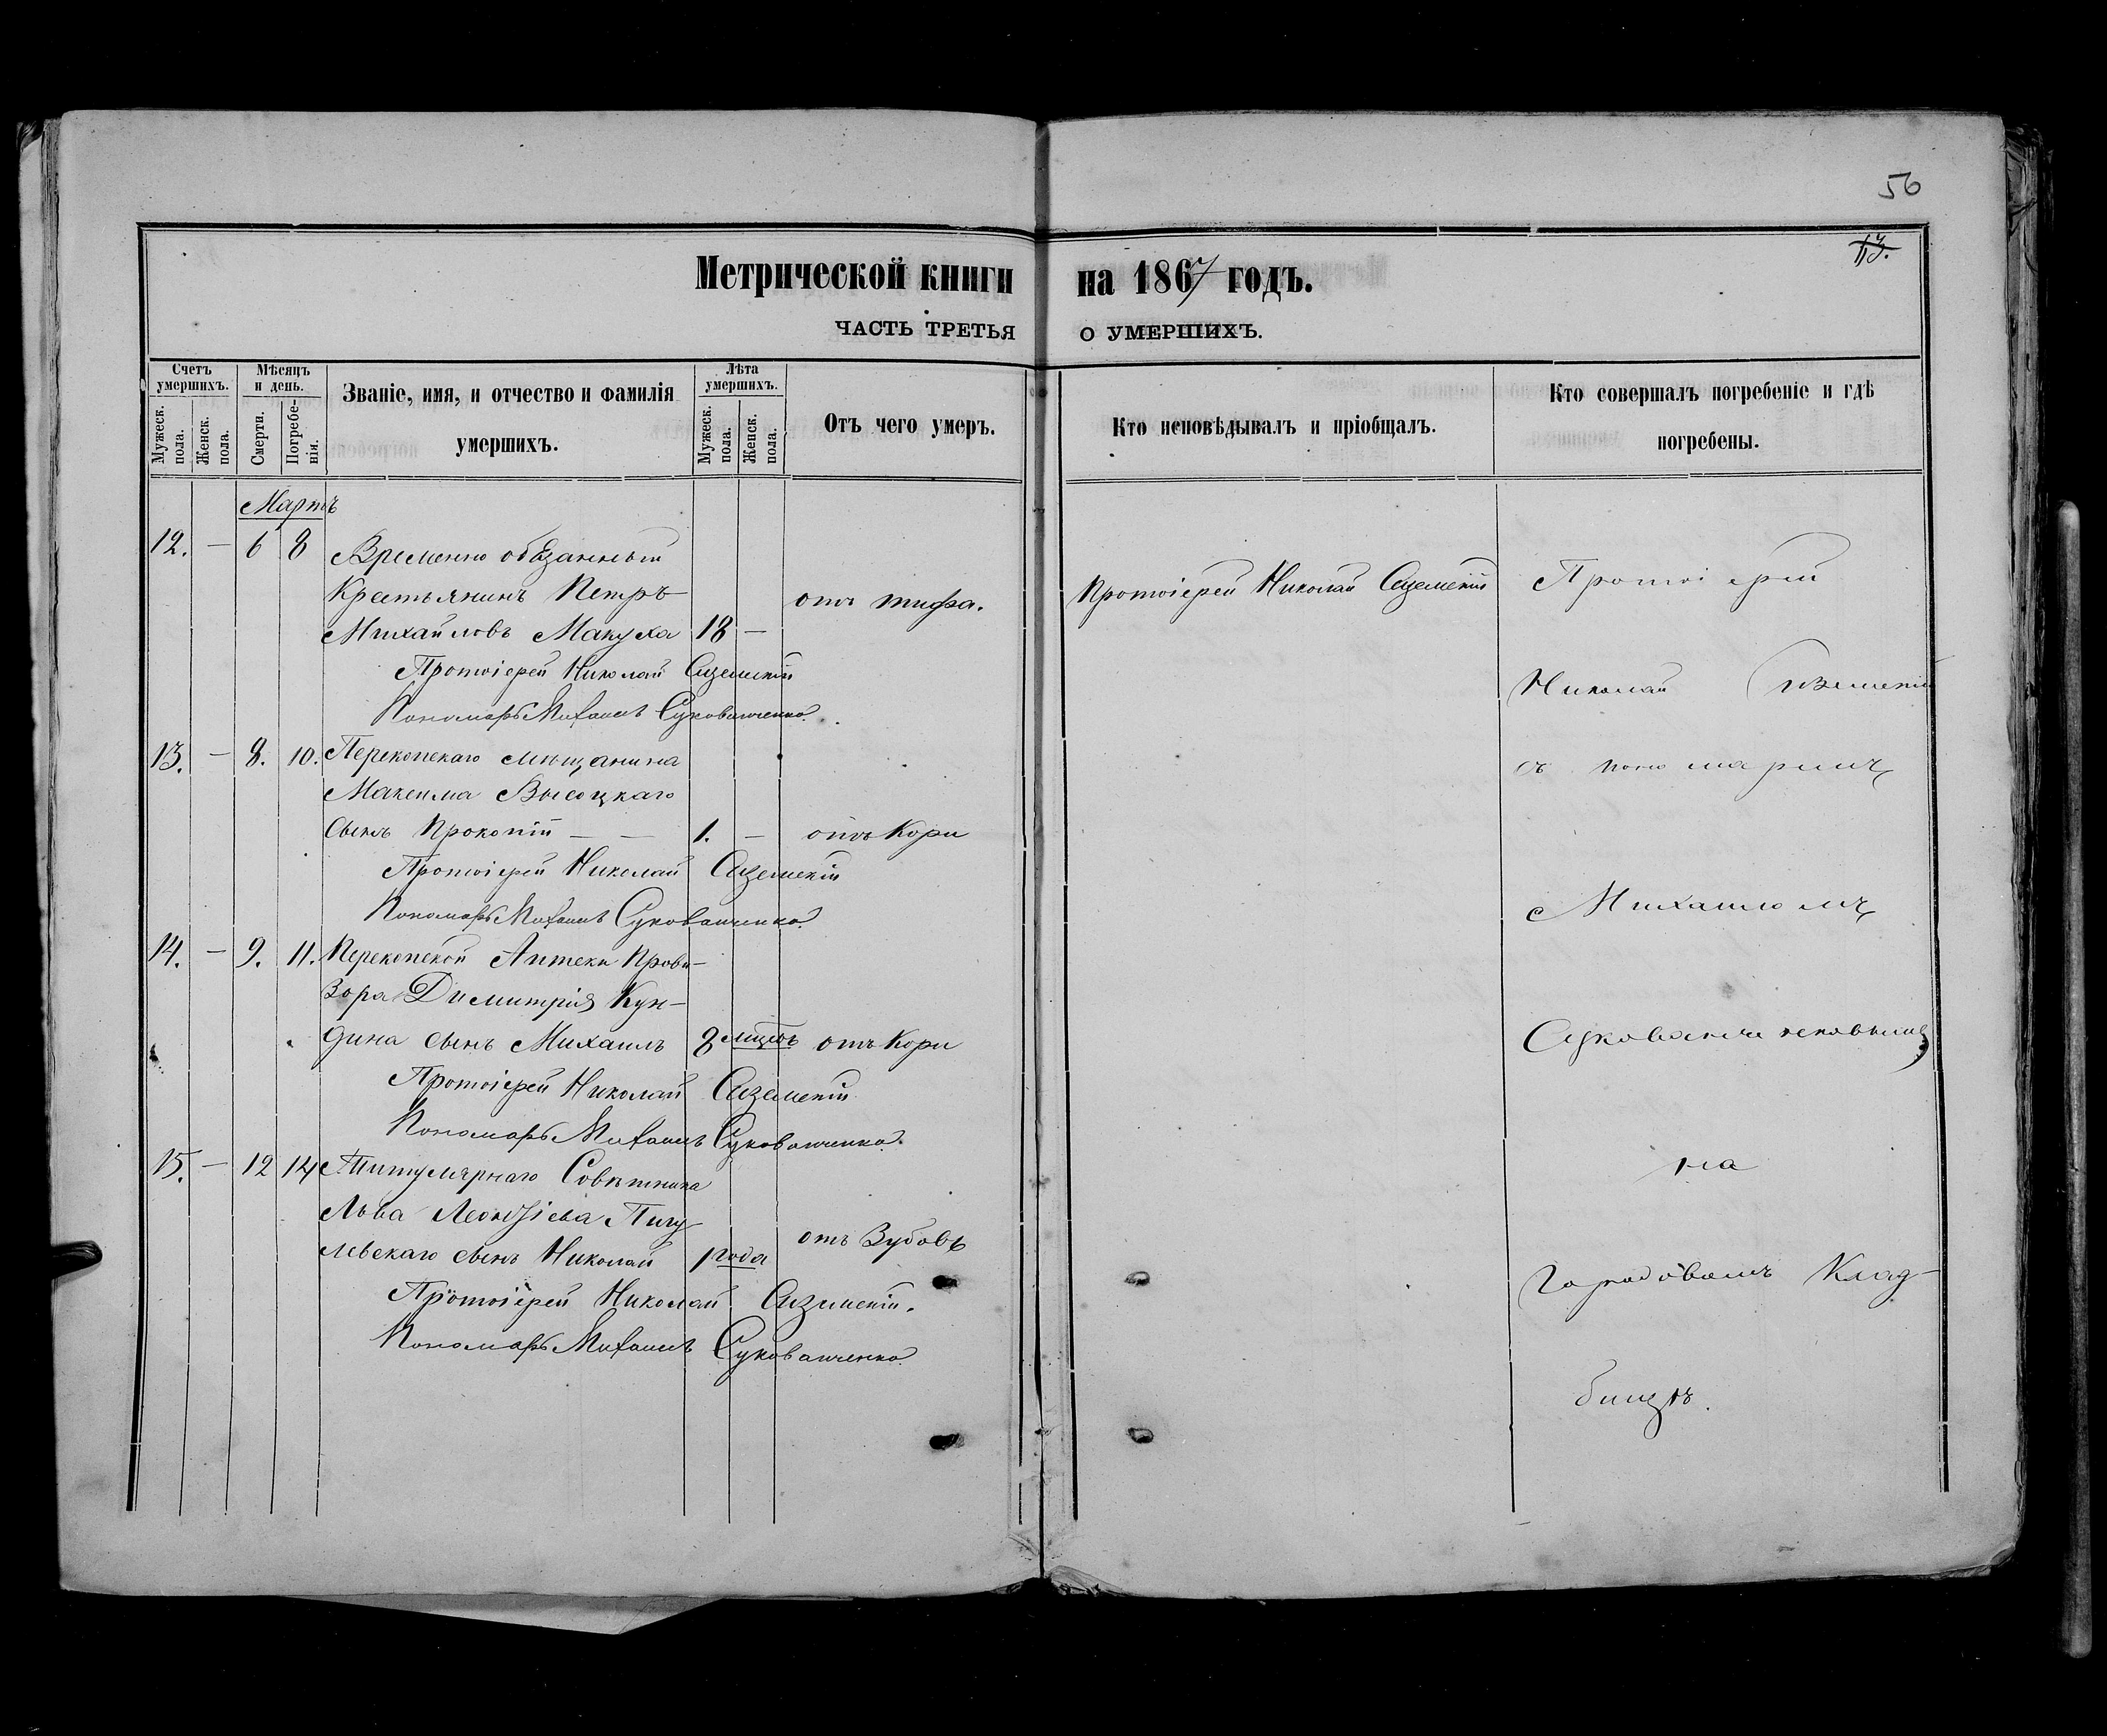 56
13.
Метрической книги на 1867 годъ.
ЧАСТЬ ТРЕТЬЯ О УМЕРШИХЪ.
Счетъ умершихъ.
Мужеск. пола.
Женск. пола.
Мѣсяцъ и день.
Смерти.
Погребенія.
Званіе, имя, и отчество и фамилія
умершихъ.
Лѣта умершихъ.
Мужеск. пола.
Женск. пола.
Отъ чего умеръ.
Кто исповѣдывалъ и пріобщалъ.
Кто совершалъ погребеніе и гдѣ
погребены.
Мартъ
12. — 6 8 Временно обязанный
Крестьянинъ Петръ
Михайловъ Макуха 18 — отъ тифа.
Протоіерей Николай
Пономарь Михаилъ
13. — 8. 10. Перекопскаго мѣщанина
Максима Высоцкаго
сынъ Прокопій — — 1. — отъ Кори
Протоіерей Николай
Пономарь Михаилъ
14. — 9. 11. Перекопской Аптеки Прови-
зора Димитрія Кун-
дина сынъ Михаилъ 8 мѣсяц. отъ Кори
Протоіерей Николай
Пономарь Михаилъ
15. — 12 14 Титулярнаго Совѣтника
Льва Леонтіева Пигу-
левскаго сынъ Николай 1 года отъ Зубовъ
Протоіерей Николай
Пономарь Михаилъ
Протоіерей Николай
Протоіерей
Николай
съ пономаремъ
Михаиломъ
на
городовомъ Клад-
бищѣ.